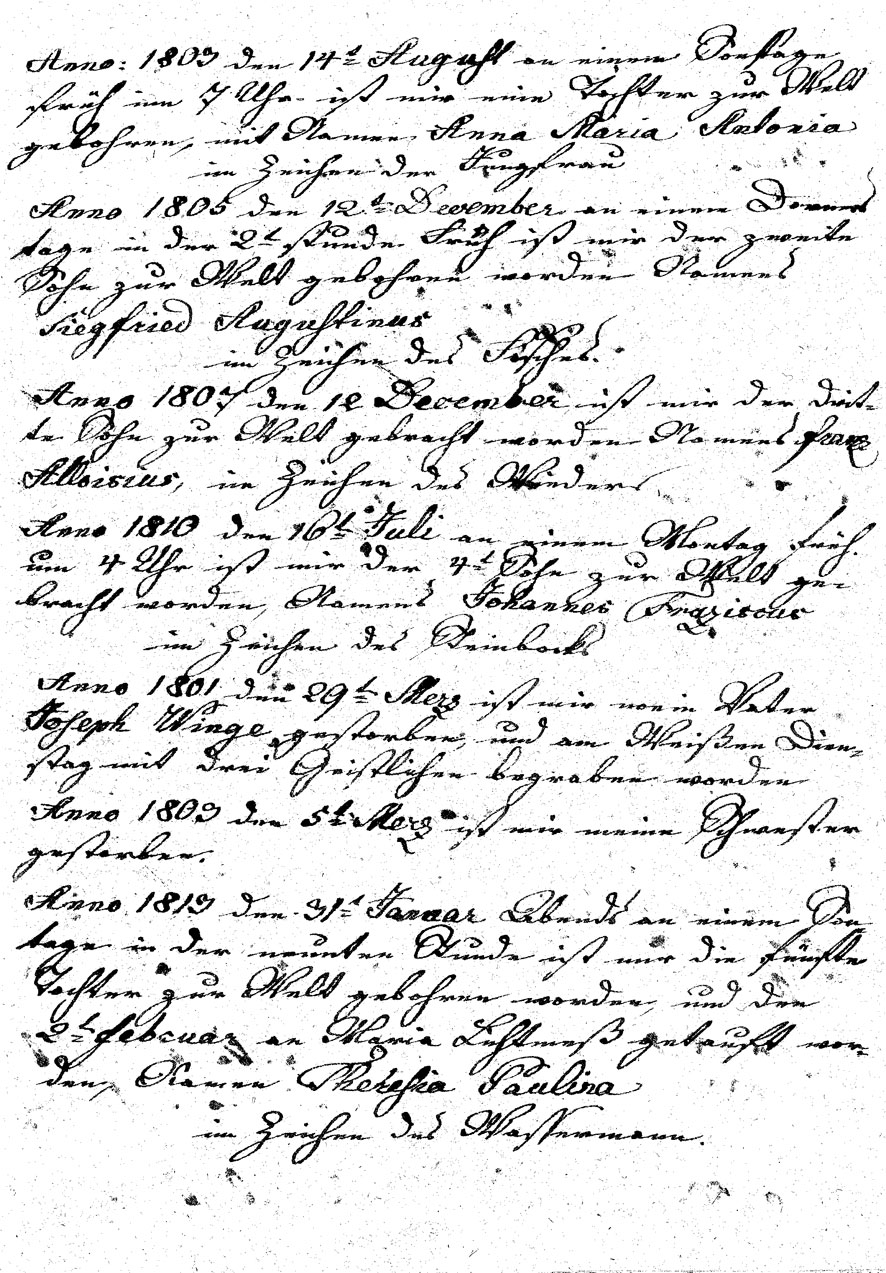 Anno: 1803 den 14t August an einem Sonstage
früh um 7 Uhr ist mir eine Tochter zur Welt
gebohren, mit Namen Anna Maria Antonia
im Zeichen der Jungfrau
Anno 1805 den 12t December an einem Donners
tage in der 2t stunde Früh ist mir der zweite
Sohn zur Welt gebohren worden Namens
Siegfried Augustinus
im Zeichen des Fisches.
Anno 1807 den 12 December ist mir der drit-
te Sohn zur Welt gebracht worden Namens Franz
Alloisius, im Zeichen des Wieders
Anno 1810 den 16t Juli an einem Montag früh.
um 4 Uhr ist mir der 4t Sohn zur Welt ge-
bracht worden, Namens Johannes Fraziscus
im Zeichen des Steinbocks
Anno 1801 den 29t Merz ist mir mein Vater
Joseph Winge gestorben, und am Weißen Dien-
stag mit drei Geistlichen begraben worden
Anno 1803 den 5t Merz ist mir meine Schwester
gestorben.
Anno 1813 den 31t Januar Abends an einem Son
tage in der neunten Stunde ist mir die fünfte
Tochter zur Welt gebohren worden, und den
2t Februar an Maria Lichtmeß getauft wor-
den, Namen Theresia Paulina
im Zeichen des Wassermann.